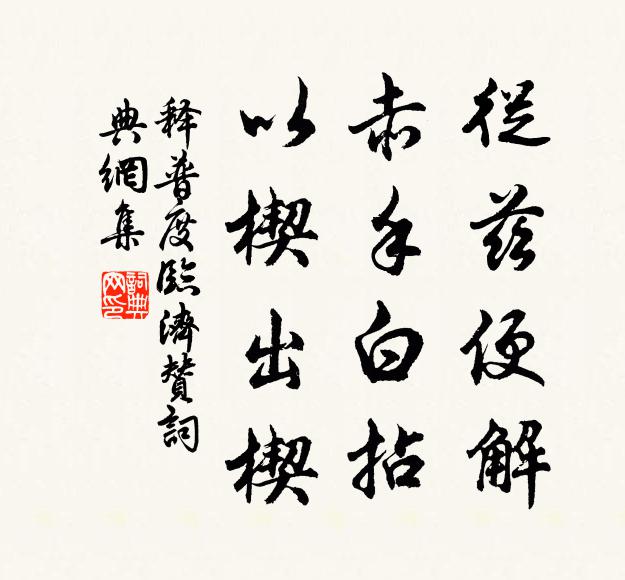 從茲便解
赤手白拈
以楔出楔
释普度臨濟贊詞
典網集
詞典網印